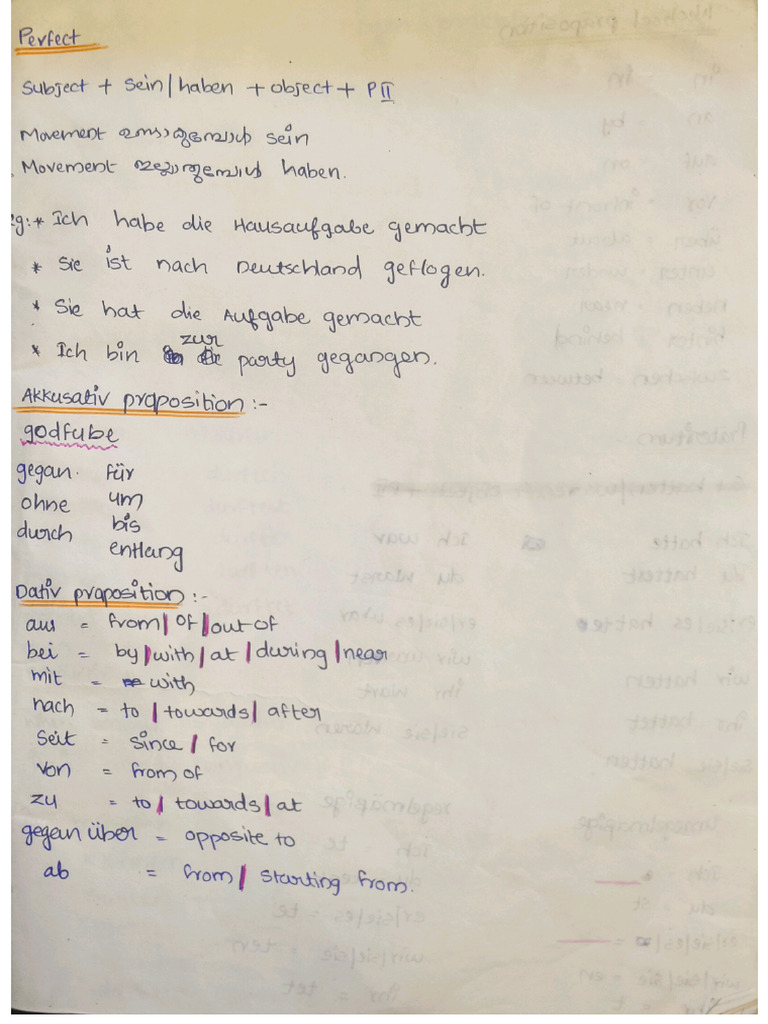 Perfect
Subject + sein/haben + object + PII
Movement ഉണ്ടാകുമ്പോൾ sein
Movement ഇല്ലാതാകുമ്പോൾ haben.
eg:* Ich habe die Hausaufgabe gemacht
* Sie ist nach Deutschland geflogen.
* Sie hat die Aufgabe gemacht
* Ich bin zur party gegangen.
Akkusativ praposition :-
godfube
gegan. für
ohne um
durch bis
entlang
Dativ praposition :-
aus = from / of / out of
bei = by / with / at / during / near
mit = with
nach = to / towards / after
seit = since / for
von = from of
zu = to / towards / at
gegan über = opposite to
ab = from / starting from.